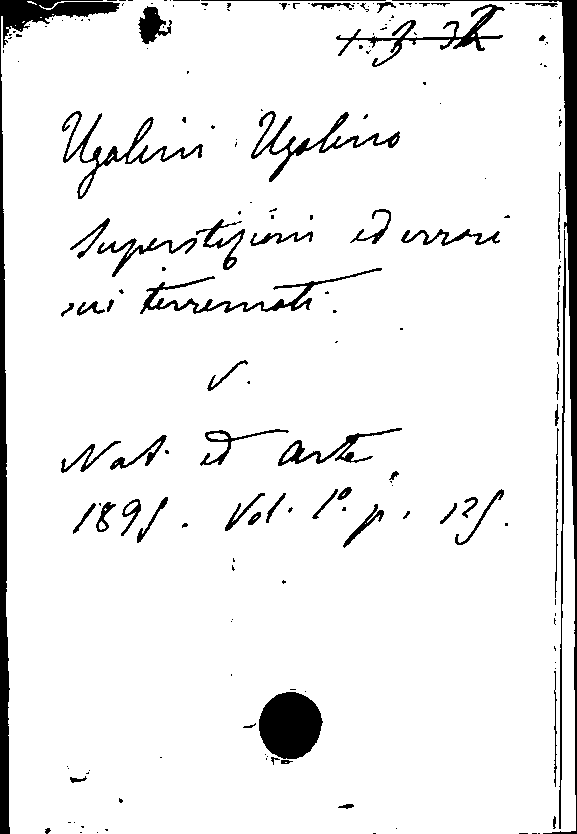 1. 3. 32
Ugolini Ugolino
Superstizioni ed errori
sui terremoti.
V.
Nat. ed Arte
1895. Vol. 1º. p. 125.